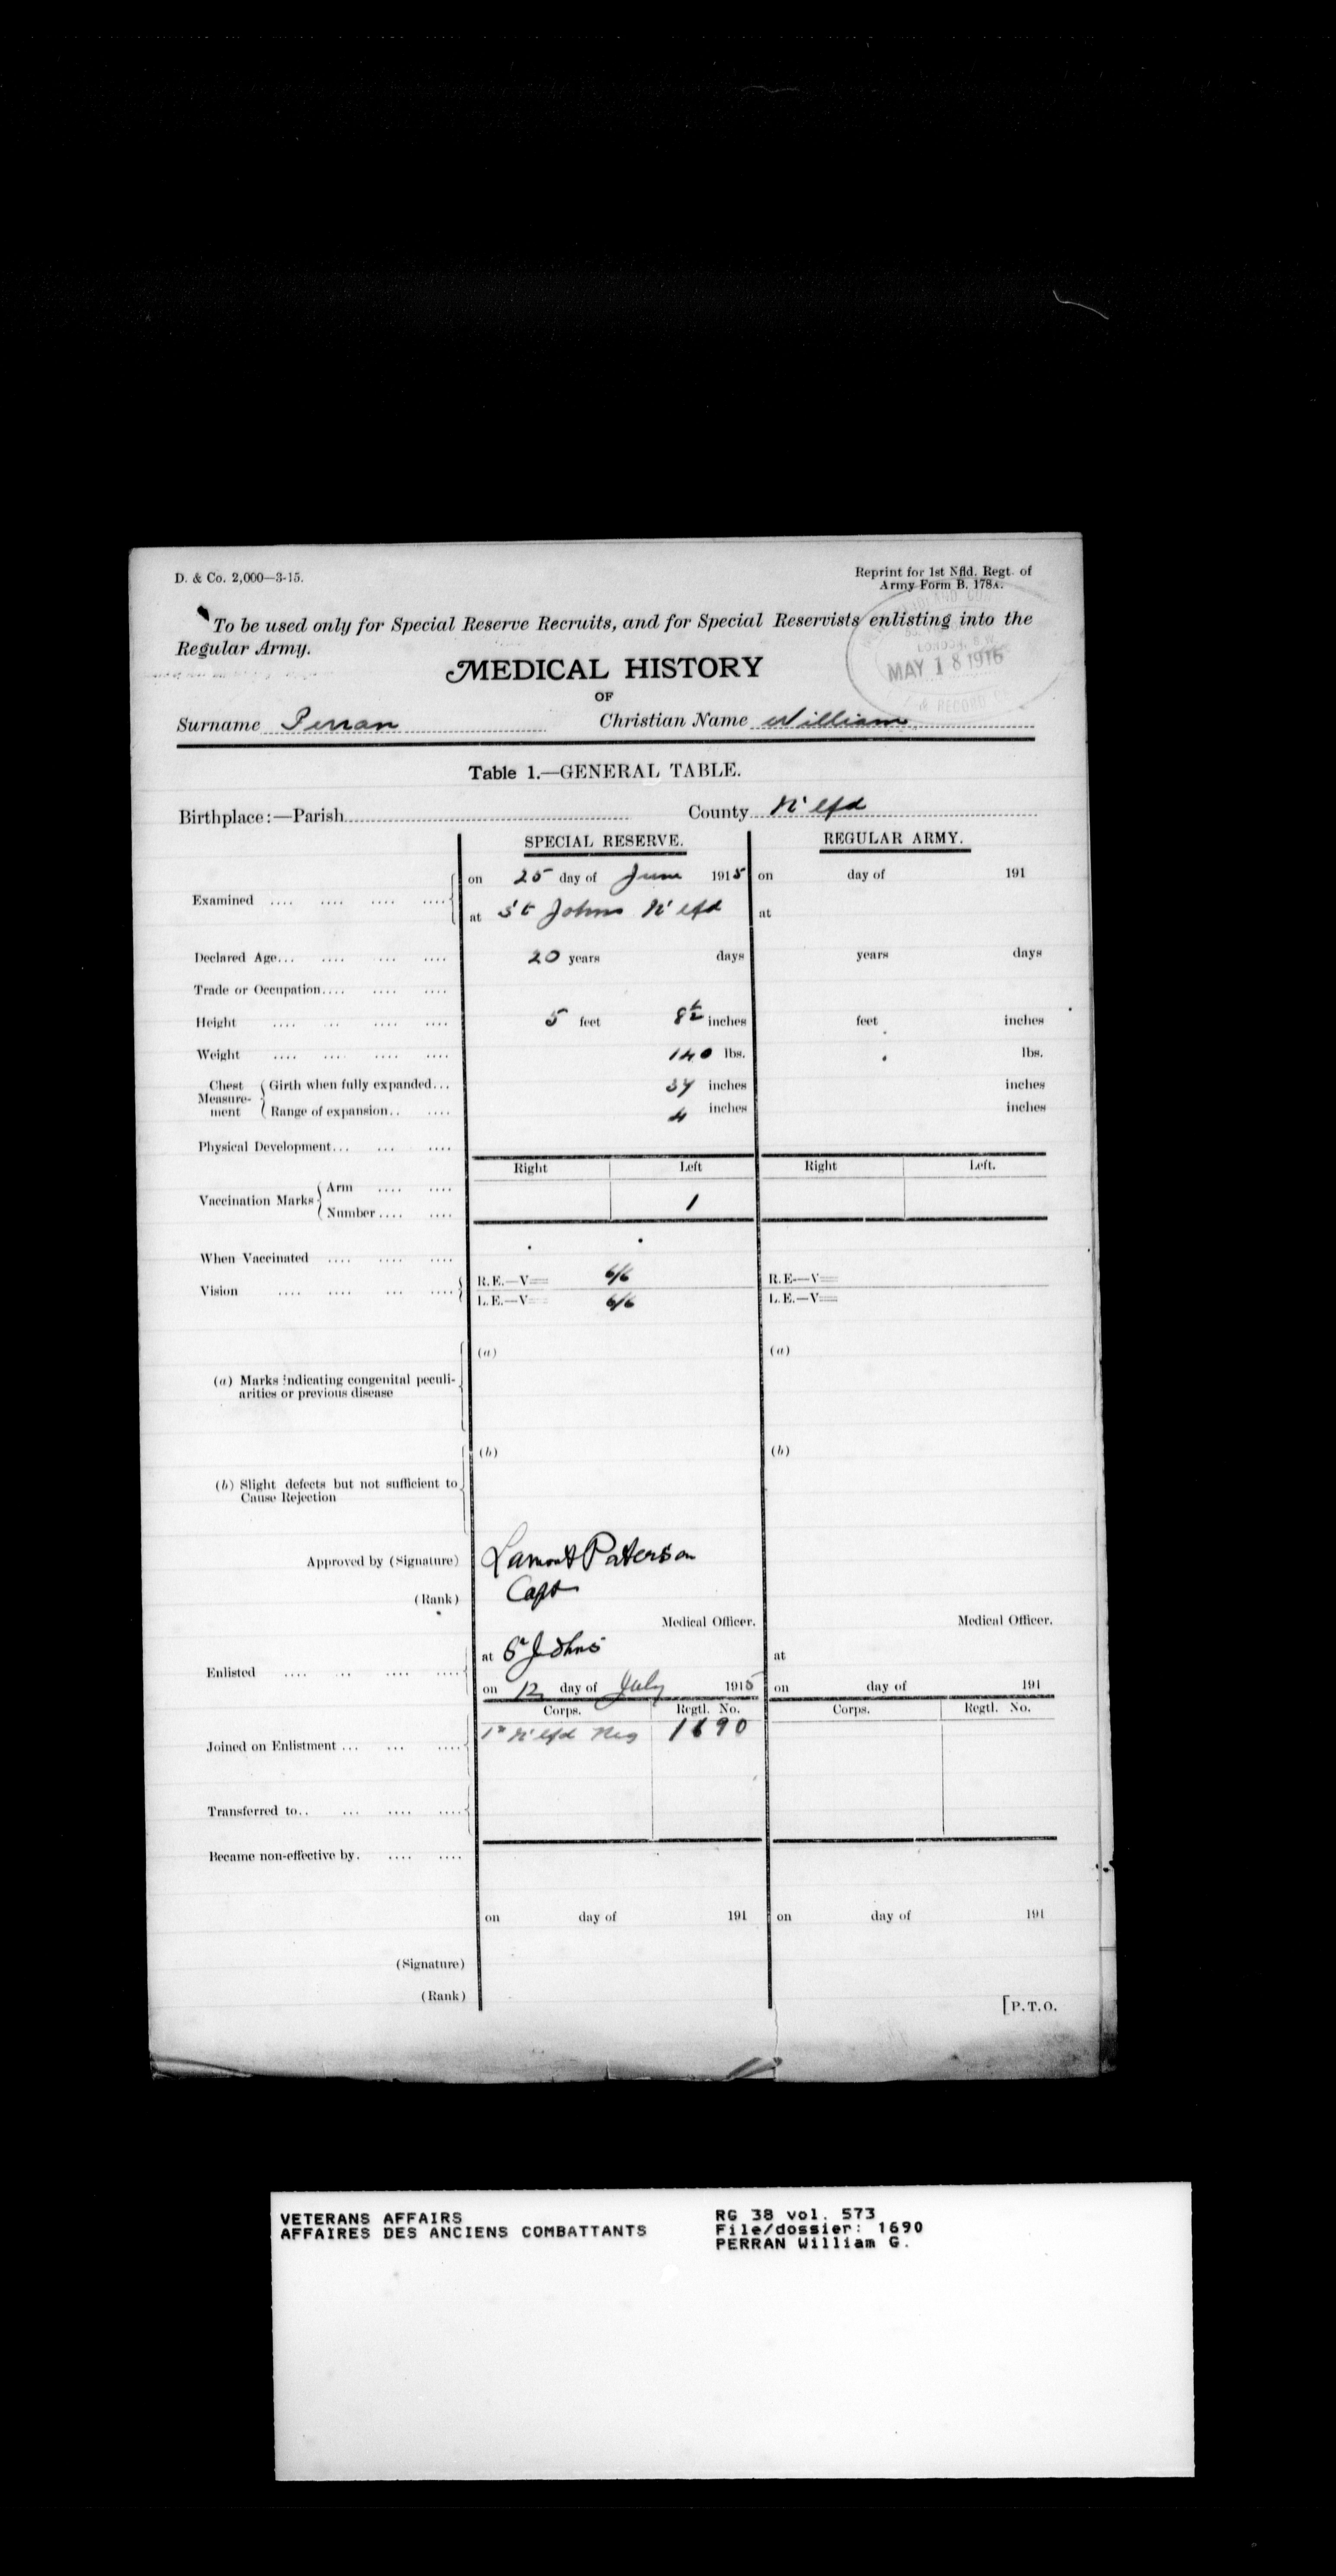 D. & Co. 2,000—3-15.
Reprint for 1st Nfld. Regt. of
Army Form B. 178A.
To be used only for Special Reserve Recruits, and for Special Reservists enlisting into the
Regular Army.
LONDON, S.W.
MAY 18 1916
& RECORD
MEDICAL HISTORY
OF
Surname Perran Christian Name William
Table 1.—GENERAL TABLE.
Birthplace:—Parish County N'lfd
SPECIAL RESERVE. REGULAR ARMY.
Examined .... .... .... .... on 25 day of June 1915 on day of 191
at St Johns N'lfd at
Declared Age... .... ... .... 20 years days years days
Trade or Occupation.... .... ....
Height .... ... .... .... 5 feet 8½ inches feet inches
Weight .... .... .... .... 140 lbs. lbs.
Chest Measurement Girth when fully expanded... 37 inches inches
Range of expansion.. .... 4 inches inches
Physical Development... ... ....
Right Left Right Left.
Vaccination Marks Arm .... ....
Number .... .... 1
When Vaccinated .... .... ....
Vision .... .... ... .... R.E.—V= 6/6 R.E.—V=
L.E.—V= 6/6 L.E.—V=
(a) (a)
(a) Marks indicating congenital peculi-
arities or previous disease
(b) (b)
(b) Slight defects but not sufficient to
Cause Rejection
Approved by (Signature) Lamont Paterson
(Rank) Capt
Medical Officer. Medical Officer.
at St Johns at
Enlisted .... ... .... ....
on 12 day of July 1915 on day of 191
Corps. Regtl. No. Corps. Regtl. No.
Joined on Enlistment ... ... .... 1st N'lfd Reg 1690
Transferred to.. ... .... ....
Became non-effective by. .... ....
on day of 191 on day of 191
(Signature)
(Rank)
[P.T.O.
VETERANS AFFAIRS
AFFAIRES DES ANCIENS COMBATTANTS
RG 38 vol. 573
File/dossier: 1690
PERRAN William G.